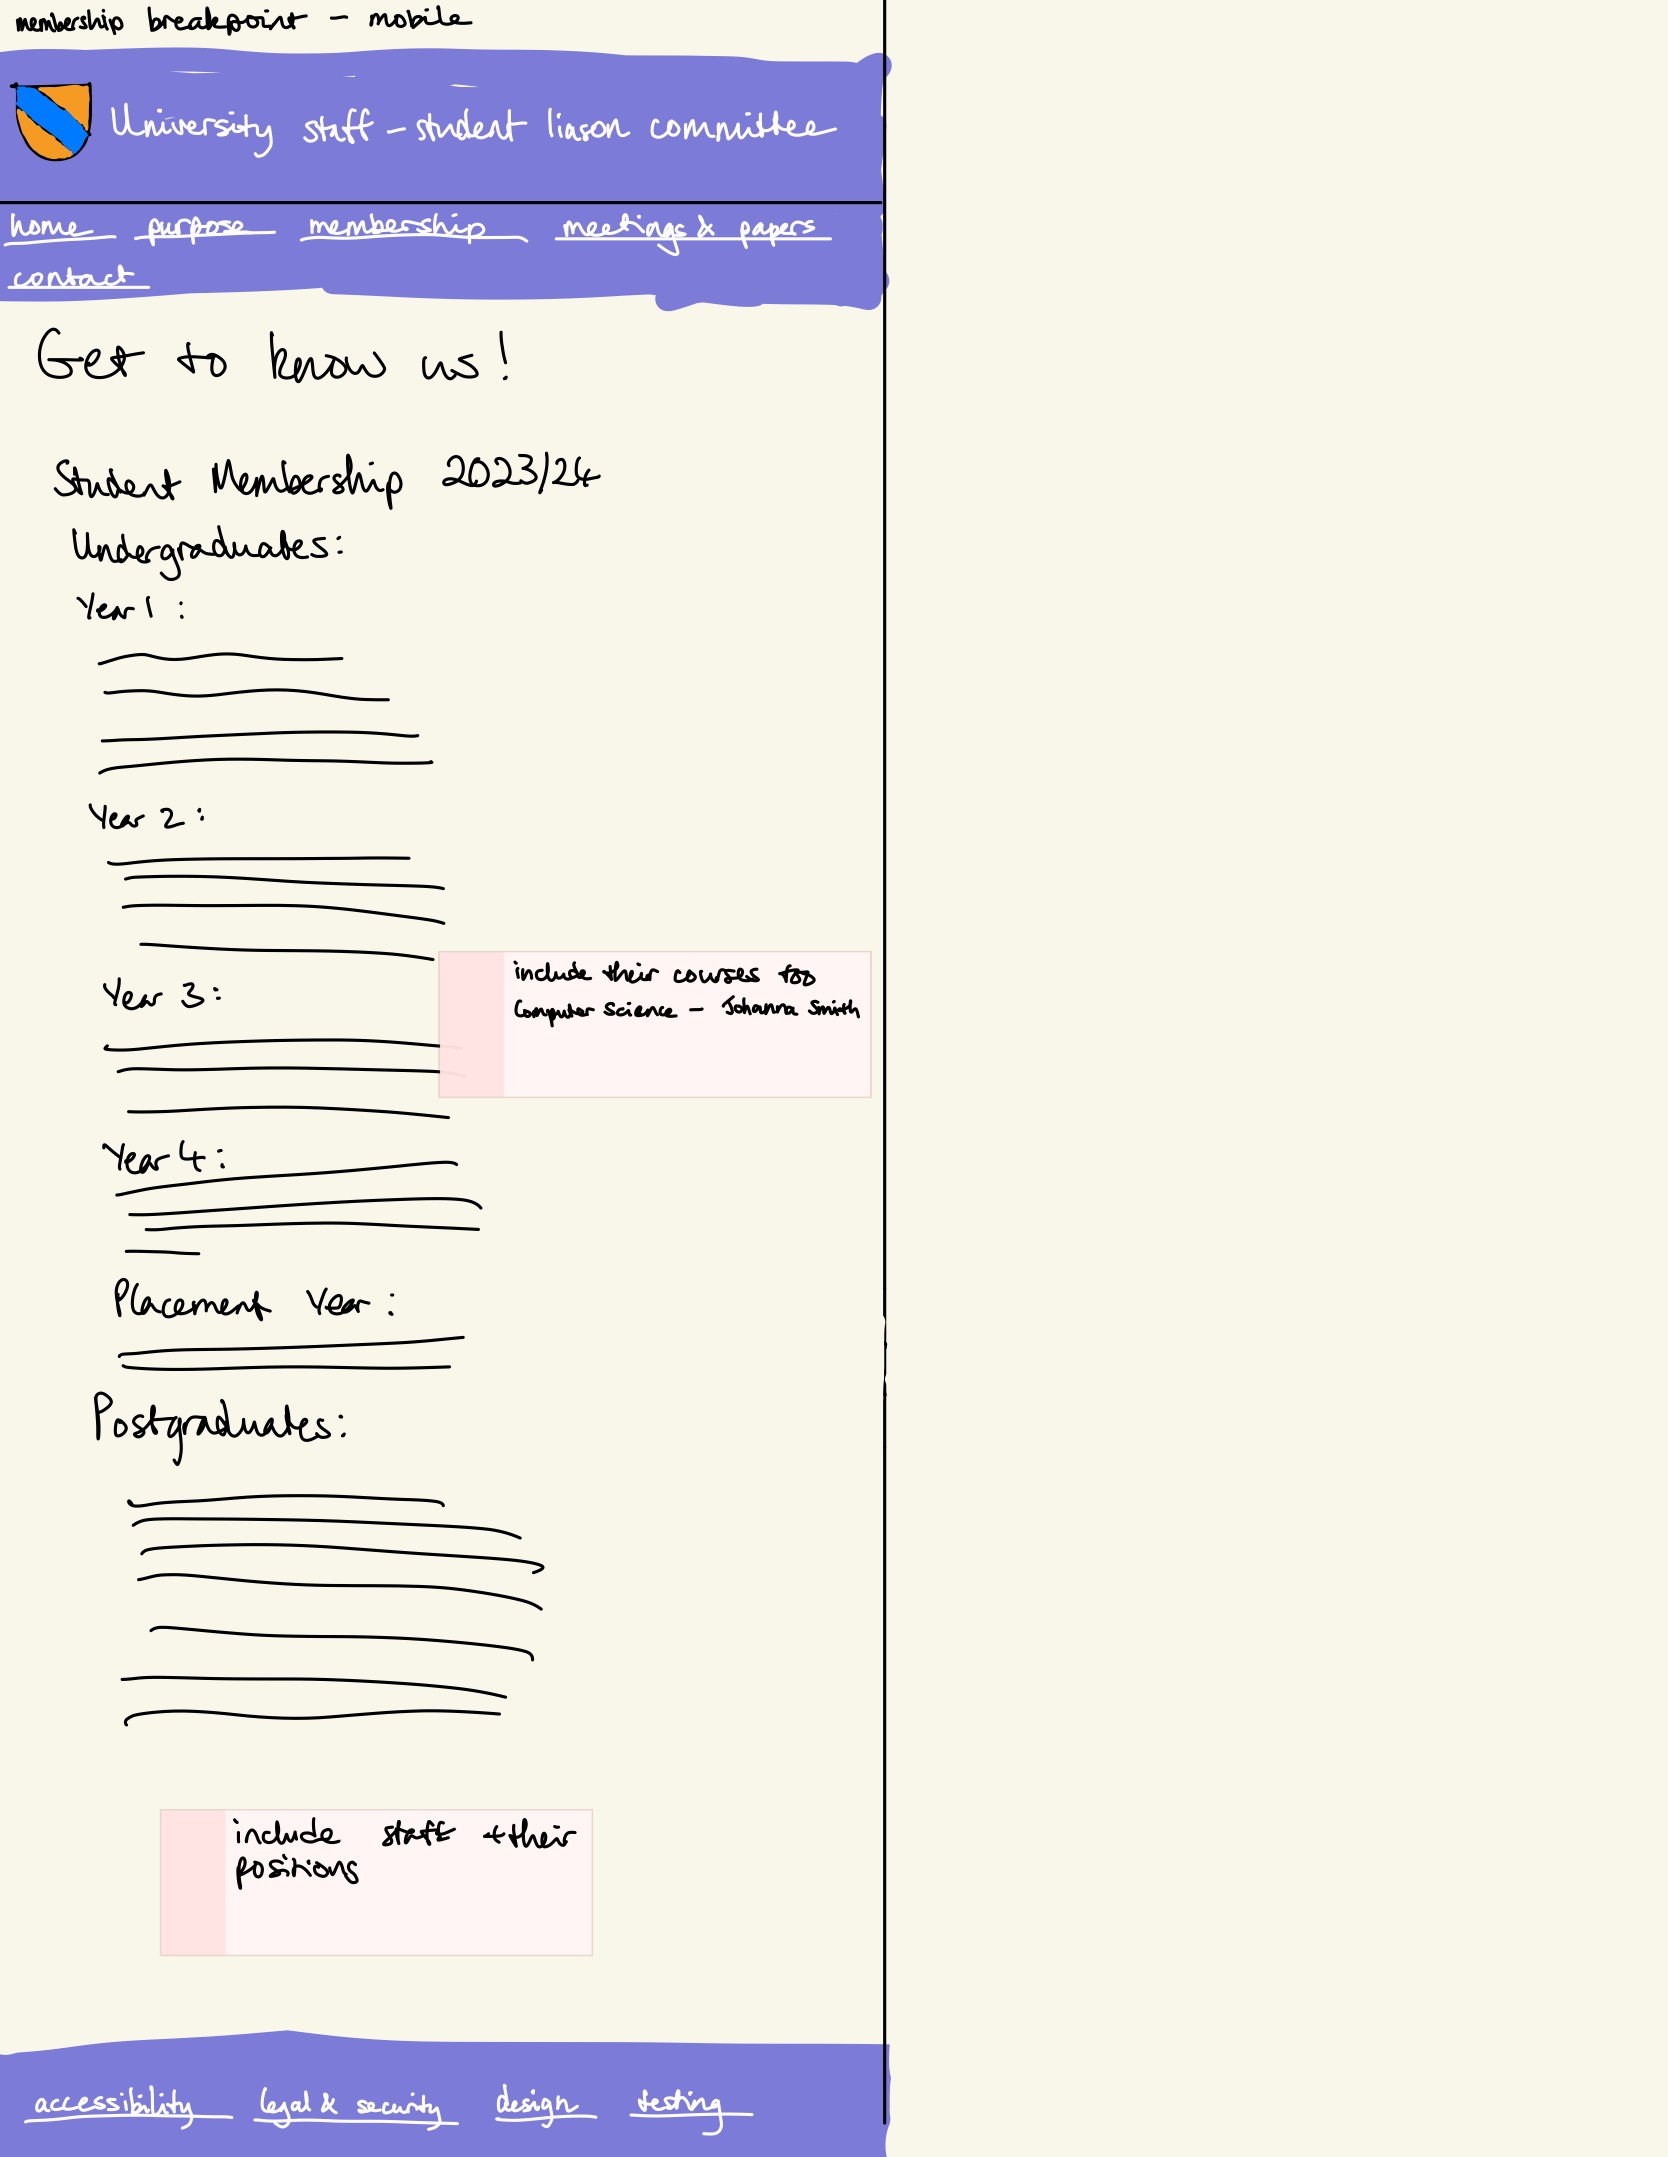 membership breakpoint - mobile
University staff - student liason committee
home purpose membership meetings & papers
contact
Get to know us!
Student Membership 2023/24
Undergraduates:
Year 1 :
Year 2 :
include their courses too
Computer Science - Johanna Smith
Year 3 :
Year 4 :
Placement Year :
Postgraduates:
include staff + their
positions
accessibility legal & security design testing